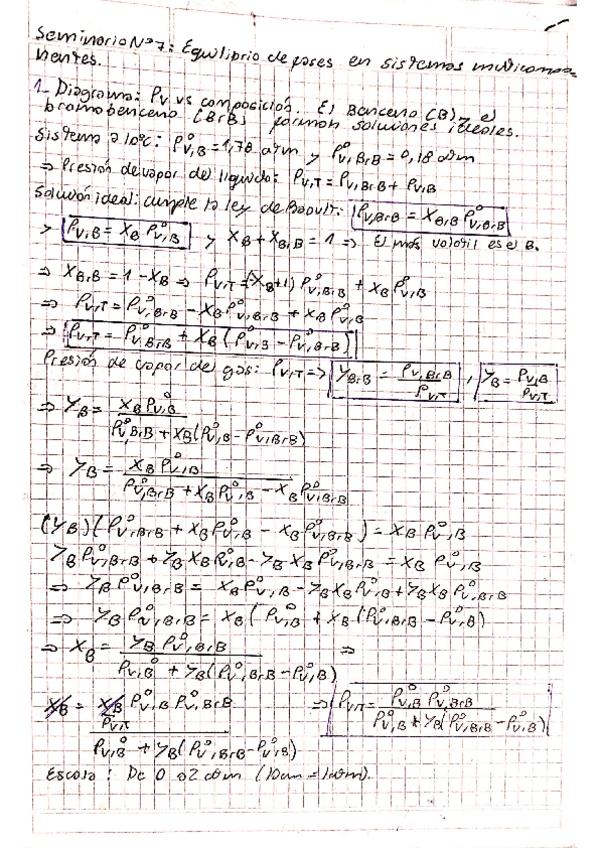 Seminario Nº 7: Equilibrio de fases en sistemas multicompo-
nentes.
1- Diagrama: Pv vs composición. El Benceno (B) y el
bromobenceno (BrB) forman soluciones ideales.
Sistema a 10°C: P°v,B = 1,78 atm y P°v,BrB = 0,18 atm
⇒ Presión de vapor del líquido: Pv,T = Pv,BrB + Pv,B
Solución ideal: cumple la ley de Raoult: Pv,BrB = XBrB P°v,BrB
y Pv,B = XB P°v,B y XB + XBrB = 1 ⇒ El más volátil es el B.
⇒ XBrB = 1 - XB ⇒ Pv,T = (-XB+1) P°v,BrB + XB P°v,B
⇒ Pv,T = P°v,BrB - XB P°v,BrB + XB P°v,B
⇒ Pv,T = P°v,BrB + XB (P°v,B - P°v,BrB)
Presión de vapor del gas: Pv,T ⇒ YBrB = Pv,BrB / Pv,T , YB = Pv,B / Pv,T
⇒ YB = XB P°v,B / P°v,BrB + XB (P°v,B - P°v,BrB)
⇒ YB = XB P°v,B / P°v,BrB + XB P°v,B - XB P°v,BrB
(YB) (P°v,BrB + XB P°v,B - XB P°v,BrB) = XB P°v,B
YB P°v,BrB + YB XB P°v,B - YB XB P°v,BrB = XB P°v,B
⇒ YB P°v,BrB = XB P°v,B - YB XB P°v,B + YB XB P°v,BrB
⇒ YB P°v,BrB = XB (P°v,B + XB (P°v,BrB - P°v,B)
⇒ XB = YB P°v,BrB / P°v,B + YB (P°v,BrB - P°v,B) ⇒
XB = XB/Pv,T P°v,B P°v,BrB / P°v,B + YB (P°v,BrB - P°v,B) ⇒ Pv,T = P°v,B P°v,BrB / P°v,B + YB (P°v,BrB - P°v,B)
Escala: De 0 a 2 atm (10cm = 1atm).